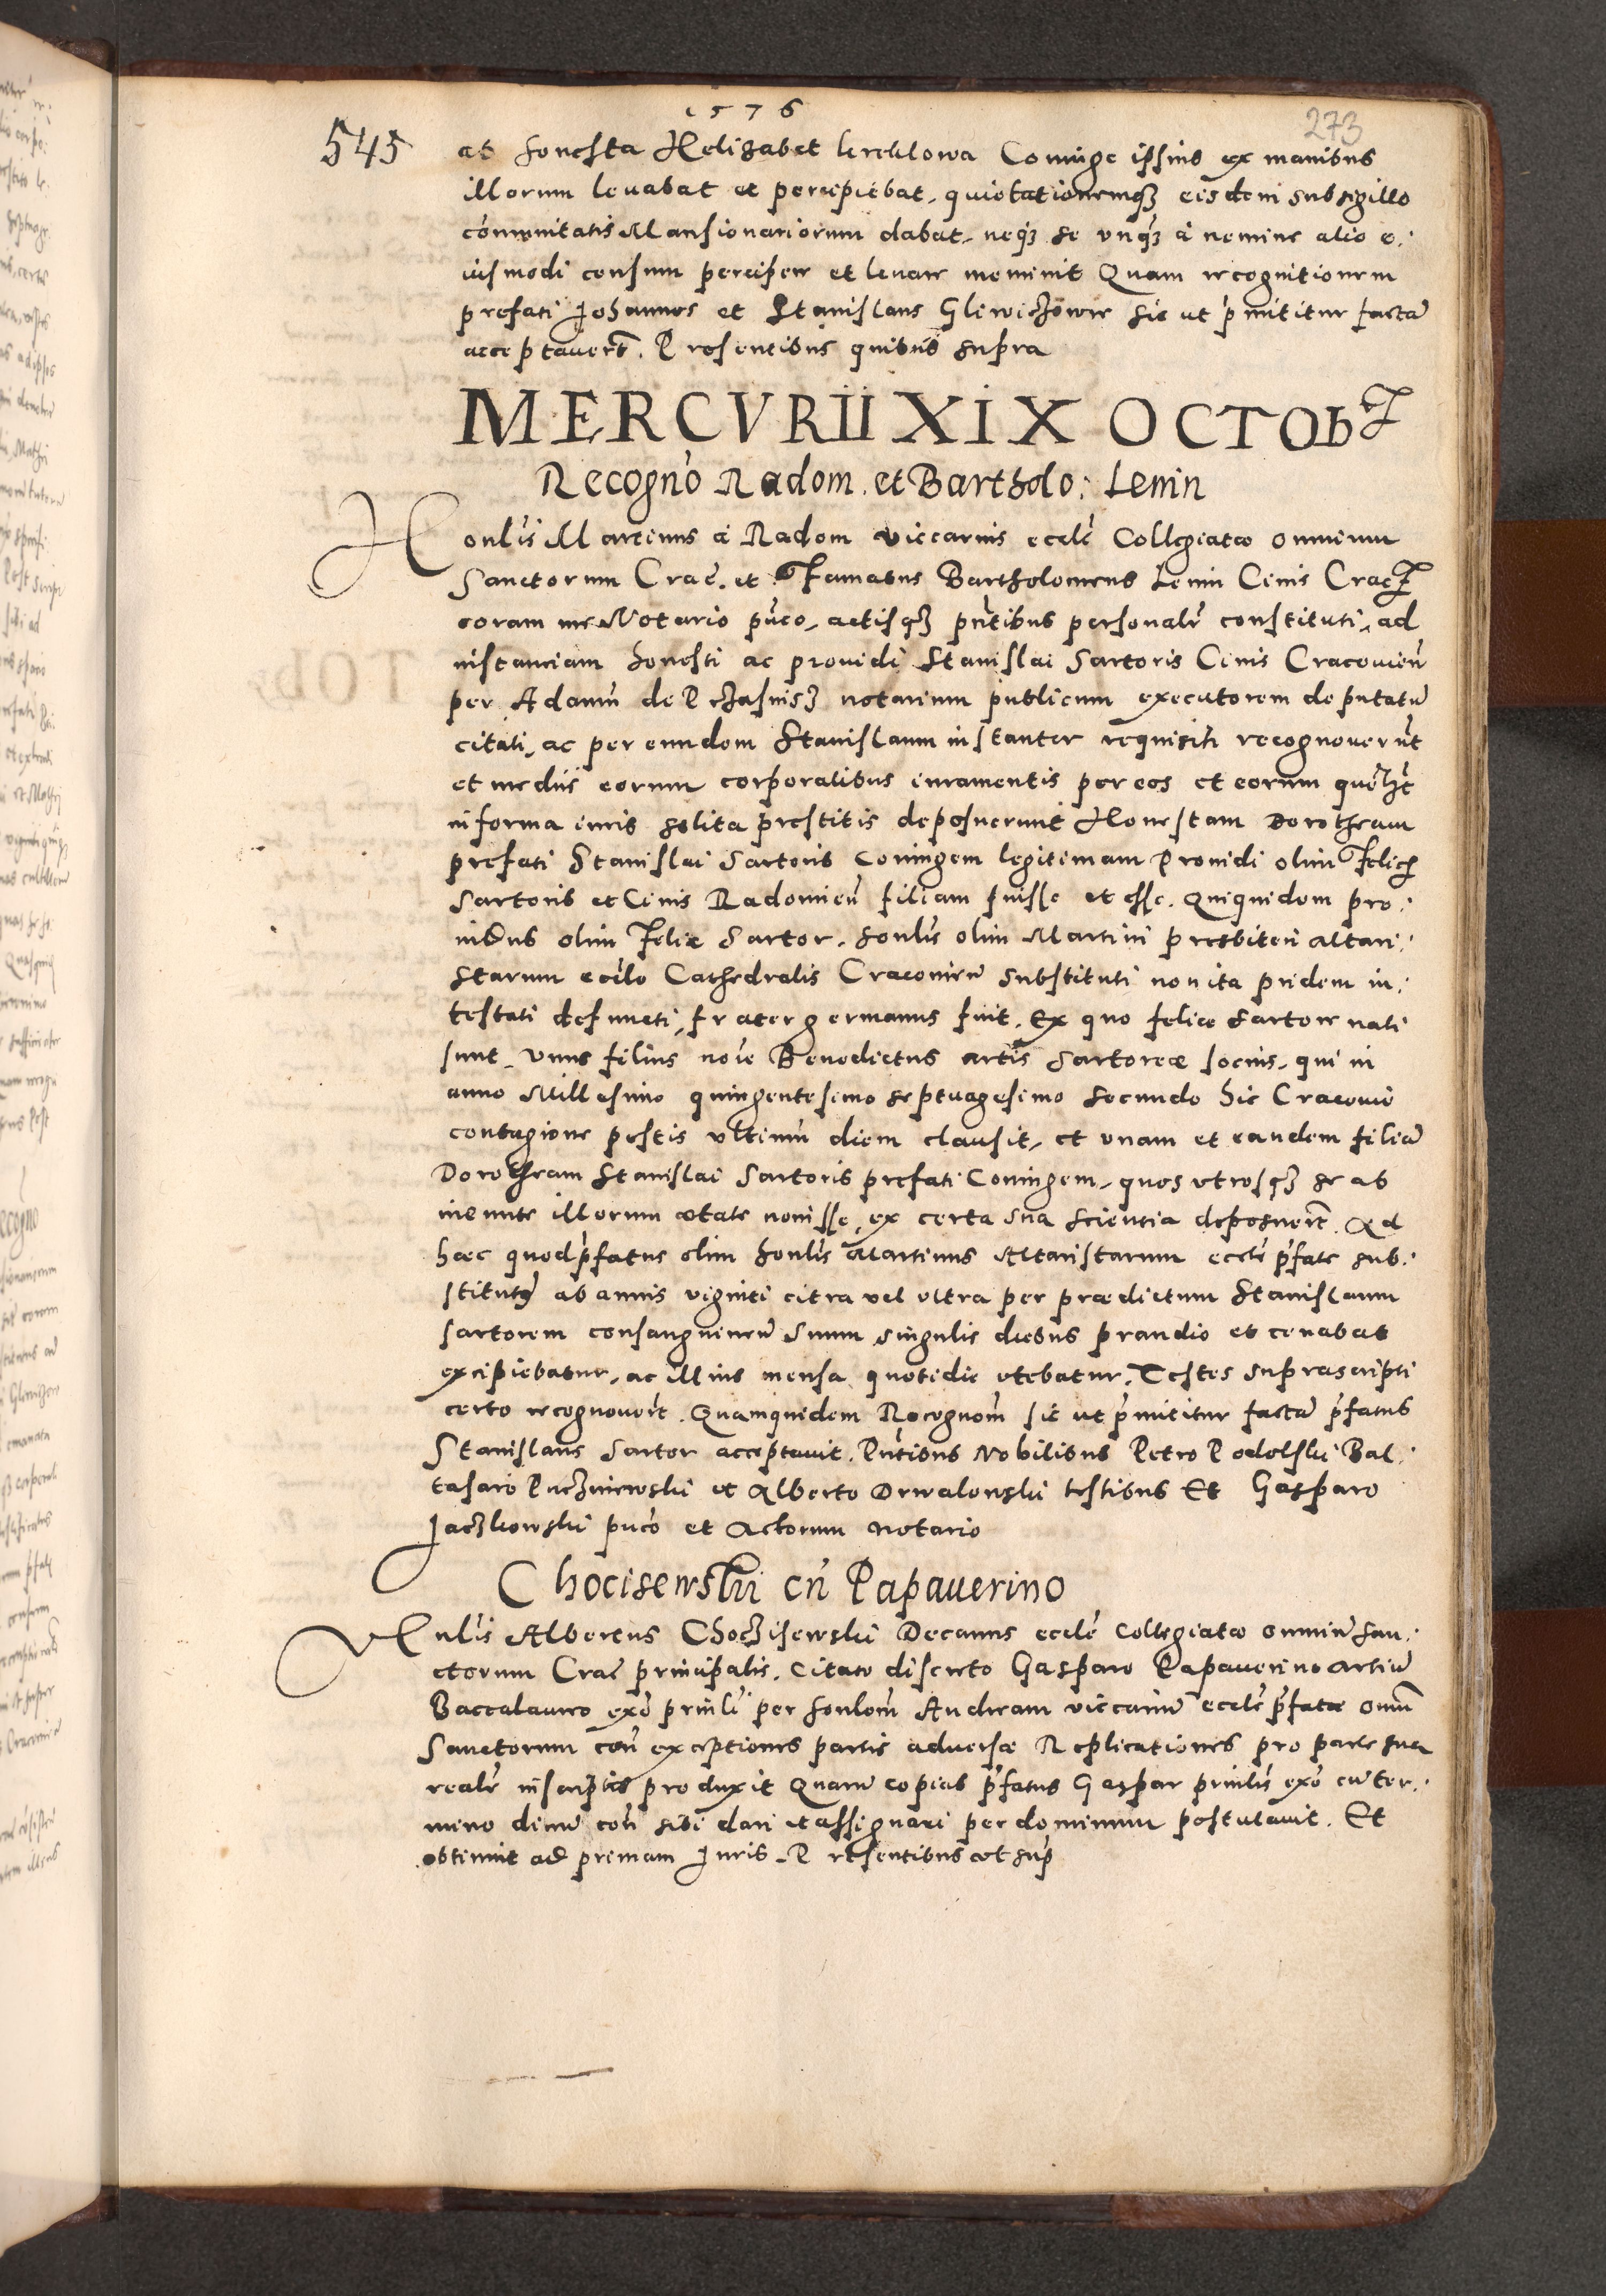 1576
273
545
ab honesta Helizabet lerchlowa Coniuge ipsius ex manibus
illorum levabat et percipiebat, quictationemq3 eisdem sub sigillo
comunitatis Mansionariorum dabat, neq3 se vnq3 à nemine alio e:
iusmodi censum percipere et levare meminit Quam recognitionem
prefati Johannes et Stanislaus Gliwiczowie sic ut pmittitur facta
acceptavert. Presentibus quibus supra
MERCVRII XIX OCTOb
Recogno Radom. et Bartholo: Lenin
Honlis Martinus à Radom viccarius eccle Collegiatæ omnium
Sanctorum Crac. et Famatus Bartholomeus Lenin Civis Crac
coram me Notario puco, actisq3 pntibus personalr constituti, ad
instanciam honesti ac providi Stanislai Sartoris Civis Cracovien
per Adamu de notarium publicum executorem deputatu
citati, ac per eundem Stanislaum instanter requisiti recognoverut
et mediis eorum corporalibus iuramentis per eos et eorum quelt
in forma iuris solita prestitis deposuerunt Honestam Dorotheam
prefati Stanislai Sartoris Coniugem legitimam Providi olim Felicis
Sartoris et Civis Radomien filiam fuisse et esse. Quiquidem pro:
vidus olim Felix Sartor, honlis olim Martini presbiteri altari:
starum eccle Cathedralis Cracovien substituti non ita pridem in:
testati defuncti, frater germanus fuit. Ex quo felice sartore nati
sunt, vnus filius noie Benedictus artis sartoreæ socius, qui in
anno Millesimo quingentesimo septuagesimo secundo hic Cracoviæ
contagione pestis vltimu diem clausit, et unam et eandem filia
Dorotheam Stanislai Sartoris prefati Coniugem, quos vtrosq3 se ab
ineunte illorum ætate novisse, ex certa sua scientia deposuert. Ad
hæc quod pfatus olim honlis Martinus Altaristarum eccle pfate sub:
stitut9 ab annis viginti citra vel vltra per prædictum Stanislaum
sartorem consanguineu suum singulis diebus prandio et cenabat
excipiebatur, ac illius mensa quotidie vtebatur. Testes suprascripti
certo recognovert. Quamquidem Recognom sic ut pmittitur facta pfatus
Stanislaus Sartor acceptavit. Pntibus Nobilibus Petro Podolski Bal:
tasaro Puczniewski et Alberto Drwalowski testibus Et Gasparo
Jaczkowski puco et Actorum notario
Chocisewski cu Papaverino
Vnlis Albertus Choczisewski Decanus eccle Collegiatæ omniu San:
ctorum Crac principalis, citato discreto Gasparo Papaverino artiu
Baccalaureo exo prinli per honlom Andream viccariu eccle pfatæ omu
Sanctorum con exceptiones partis adversæ Replicationes pro parte sua
realr inscriptis produxit Quaru copias pfatus Gaspar prinlis exo cu ter:
mino dicnu con sibi dari et assignari per dominum postulavit. Et
obtinuit ad primam Juris. Presentibus ut sup